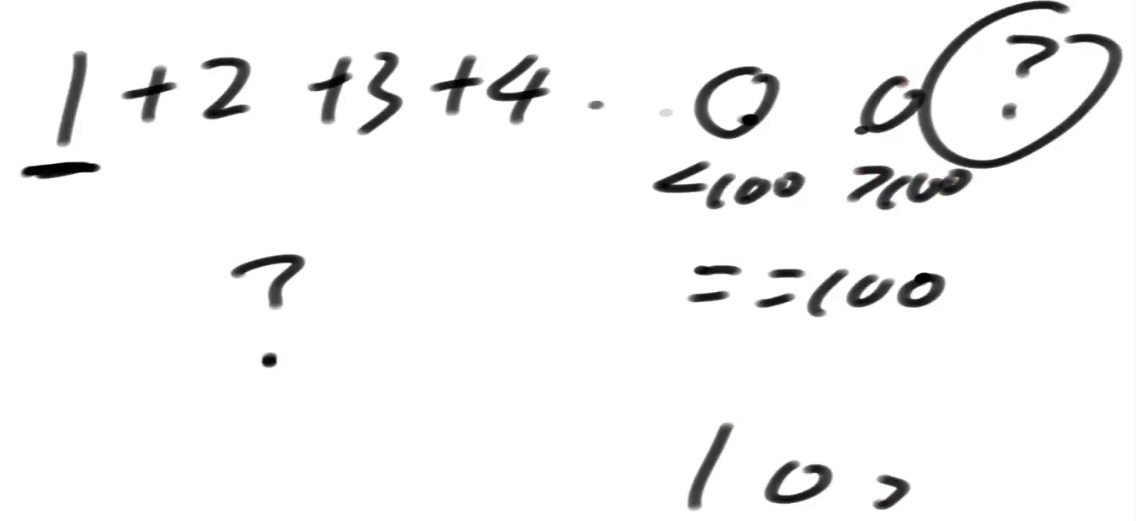 1 + 2 + 3 + 4 . . 0 . 0 ?
<100 >100
? = = 100
1 0 >